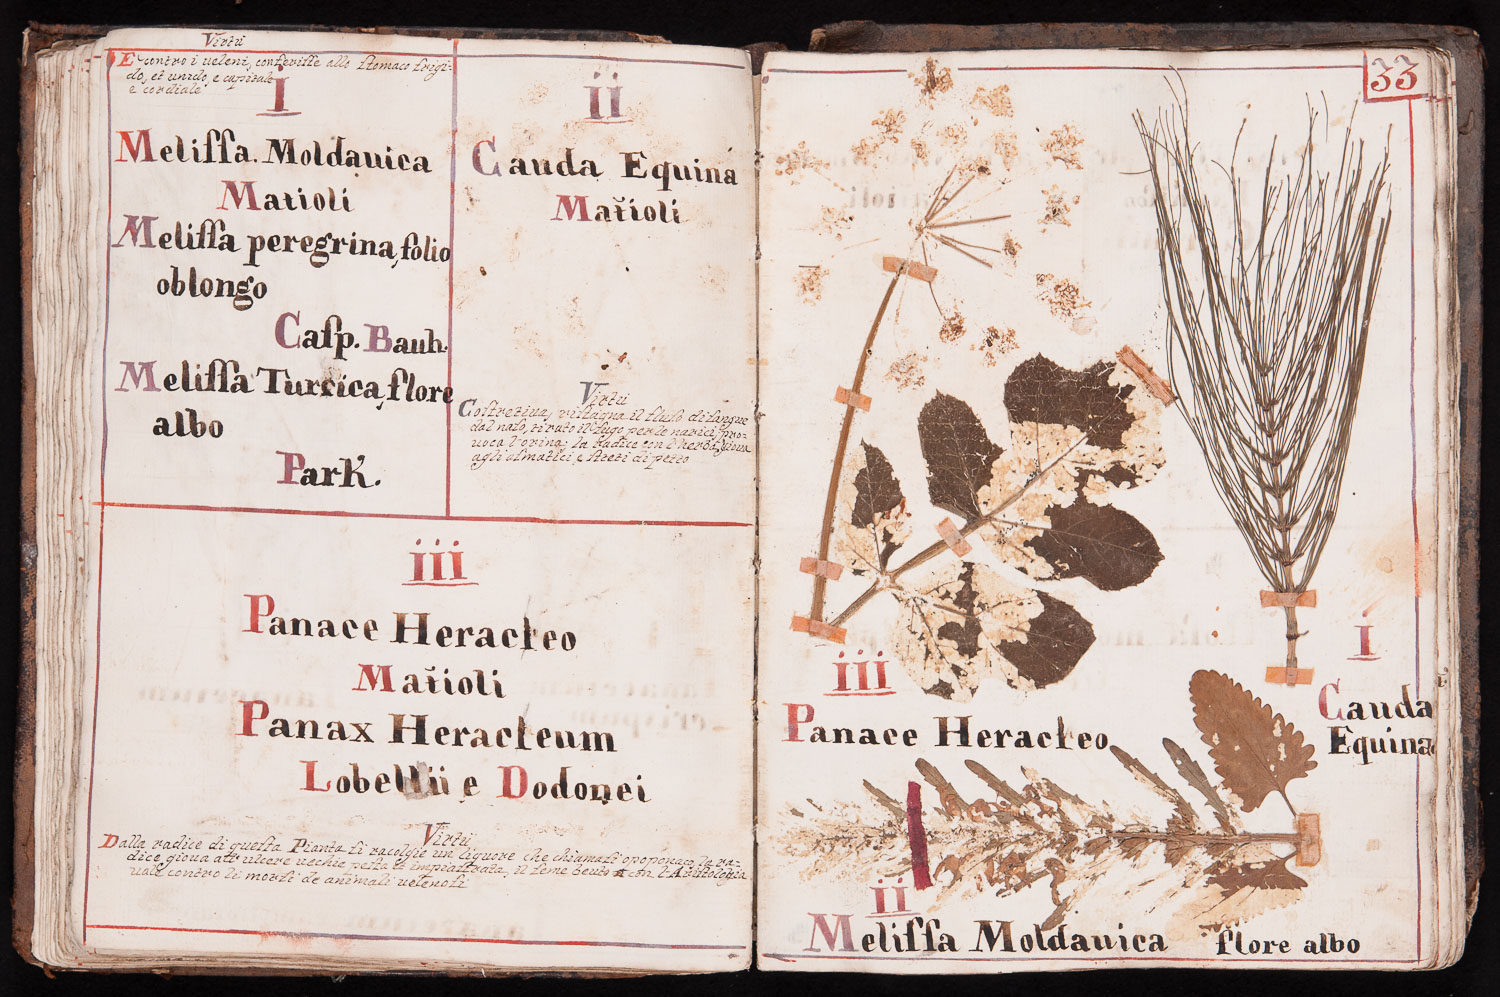 Virtù
E contro i ueleni, conferisce allo stomaco frigi-
do, et umido, e capitale
e cordiale
i
Melissa. Moldauica
Matioli
Melissa peregrina, folio
oblongo
Casp. Bauh.
Melissa Turcica, flore
albo
Park.
ii
Cauda Equina
Matioli
Virtù
Costretiua, ristagna il flusso di sangue
dal naso, tirato il sugo per le narici, pro-
uoca l'orina; la radice con l'herba gioua
agli asmatici, e streti di petto
iii
Panace Heracleo
Matioli
Panax Heracleum
Lobellii e Dodonei
Virtù
Dalla radice di questa Pianta si racoglie un liquore che chiamasi opoponaco, la ra-
dice gioua all' ulcere uechie pesta et impiastrata, il seme beuto con l'Aristologia
uale contro li morsi de animali uelenosi
33
i
Cauda
Equina
iii
Panace Heracleo
ii
Melissa Moldauica flore albo